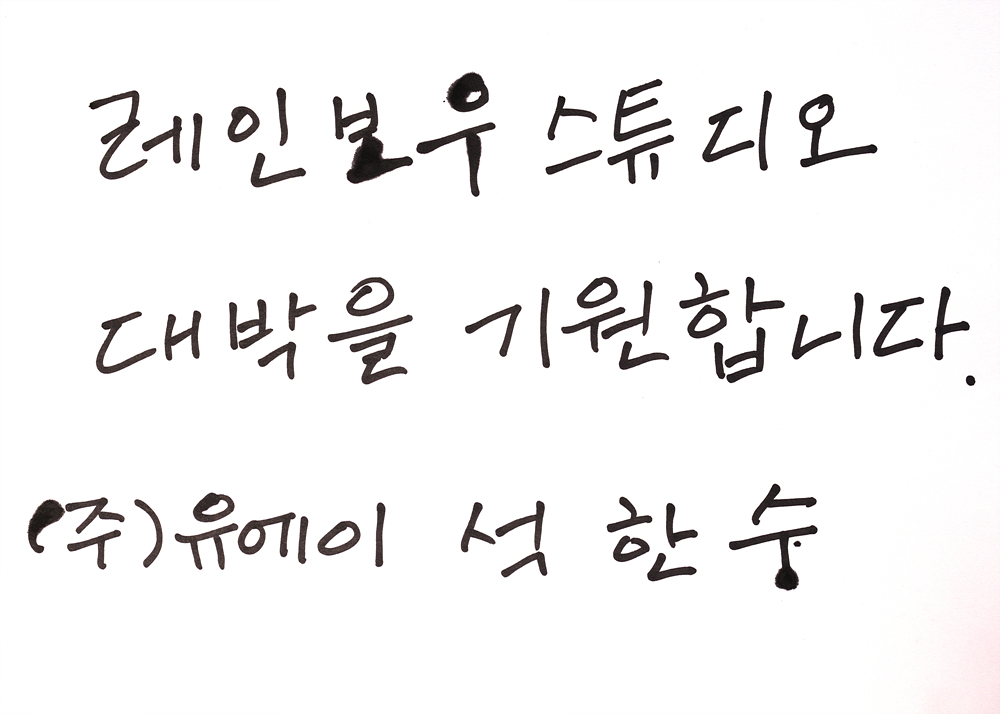 레인보우 스튜디오
대박을 기원합니다.
(주)유에이 석한수